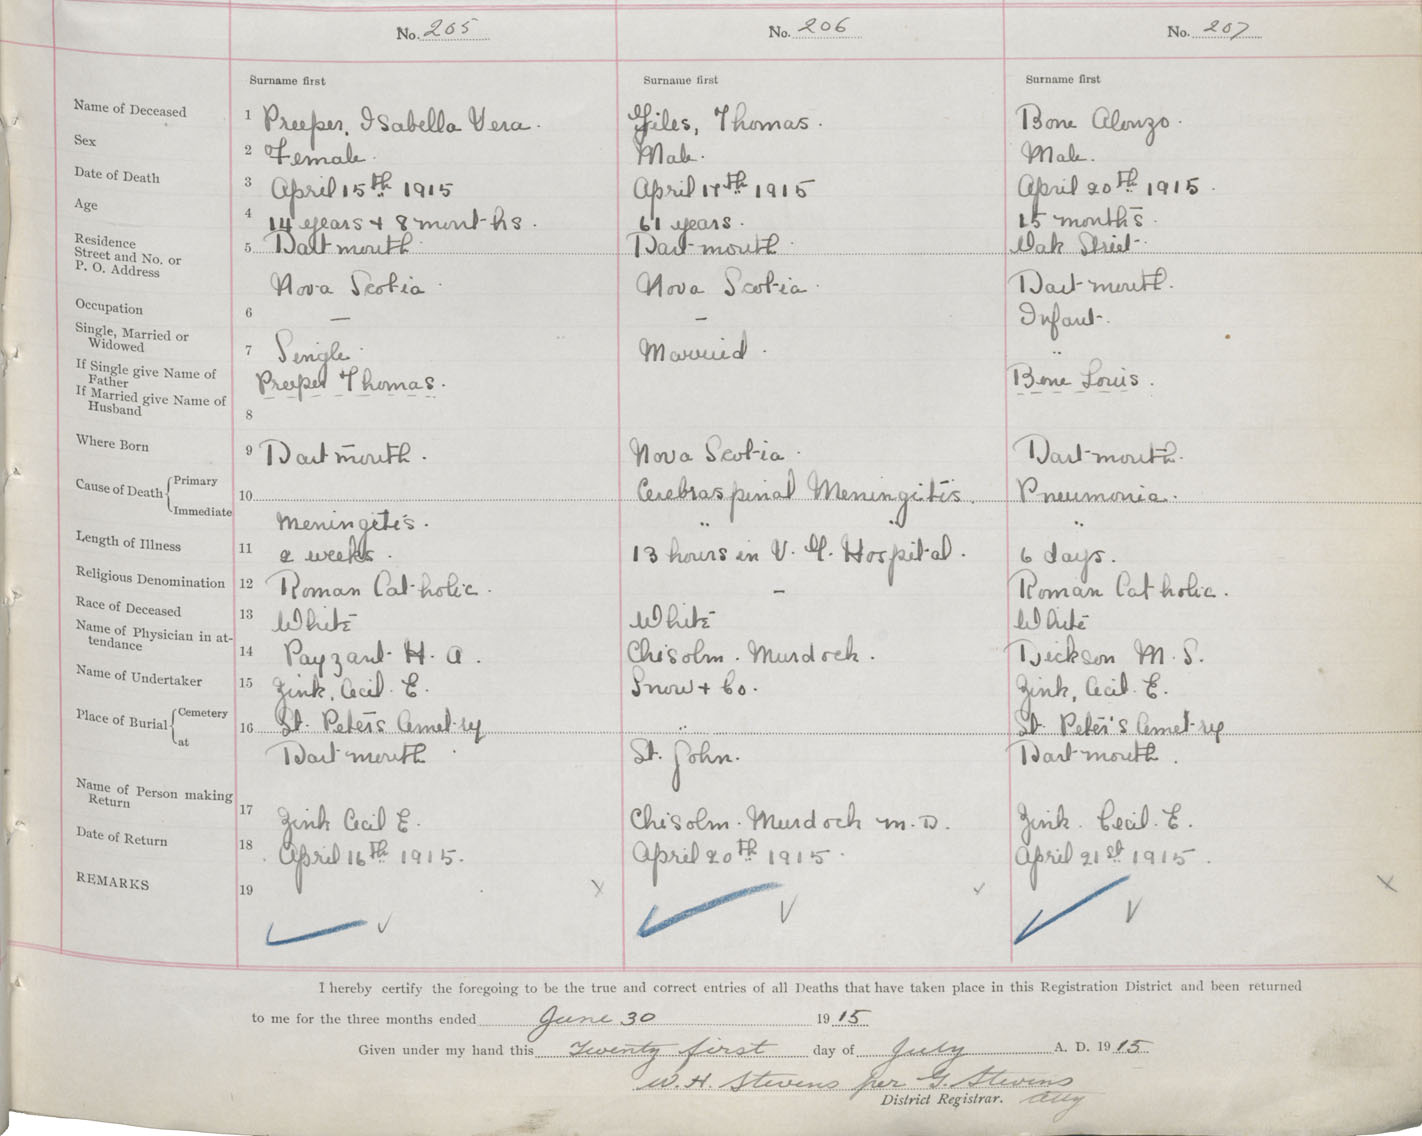 No. 205 No. 206 No. 207
Surname first Surname first Surname first
Name of Deceased 1 Preeper, Isabella Vera. Giles, Thomas. Bone Alonzo.
Sex 2 Female. Male. Male.
Date of Death 3 April 15th 1915 April 17th 1915 April 20th 1915.
Age 4 14 years + 8 months. 61 years. 15 months.
Residence Street and No. or P. O. Address 5 Dartmouth Dartmouth Oak Street.
Nova Scotia Nova Scotia. Dartmouth.
Occupation 6 — — Infant.
Single, Married or Widowed 7 Single. Married. "
If Single give Name of Father Preeper Thomas. Bone Louis.
If Married give Name of Husband 8
Where Born 9 Dartmouth. Nova Scotia. Dartmouth.
Cause of Death Primary 10 Cerebraspinal Meningitis. Pneumonia.
Immediate Meningitis. " " "
Length of Illness 11 2 weeks. 13 hours in V. G. Hospital. 6 days.
Religious Denomination 12 Roman Catholic. — Roman Catholic.
Race of Deceased 13 White White White
Name of Physician in attendance 14 Payzant H. A. Chisolm. Murdock. Dickson M. S.
Name of Undertaker 15 Zink, Cecil. E. Snow + Co. Zink, Cecil. E.
Place of Burial Cemetery 16 St. Peter's Cemetry " St. Peter's Cemetry
at Dartmouth St. John. Dartmouth.
Name of Person making Return 17 Zink Cecil E. Chisolm. Murdock M.D. Zink. Cecil. E.
Date of Return 18 April 16th 1915. April 20th 1915. April 21st 1915.
REMARKS 19
I hereby certify the foregoing to be the true and correct entries of all Deaths that have taken place in this Registration District and been returned
to me for the three months ended June 30 1915
Given under my hand this Twenty first day of July A. D. 1915
W. H. Stevens per G. Stevens
District Registrar. Atty